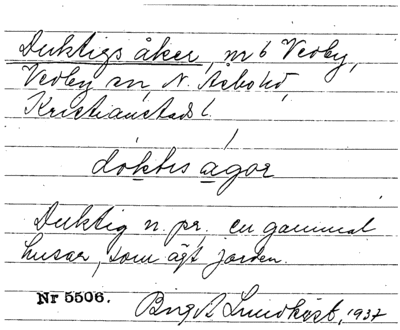 Duktigs åker, m 6 Vedby,
Vedby sn, N. Åsbo hd,
Kristianstads l.
doktis ågor
Duktig n. pr. en gammal
husar, som ägt jorden.
Nr 5506. Birg. A. Lundkvist, 1937